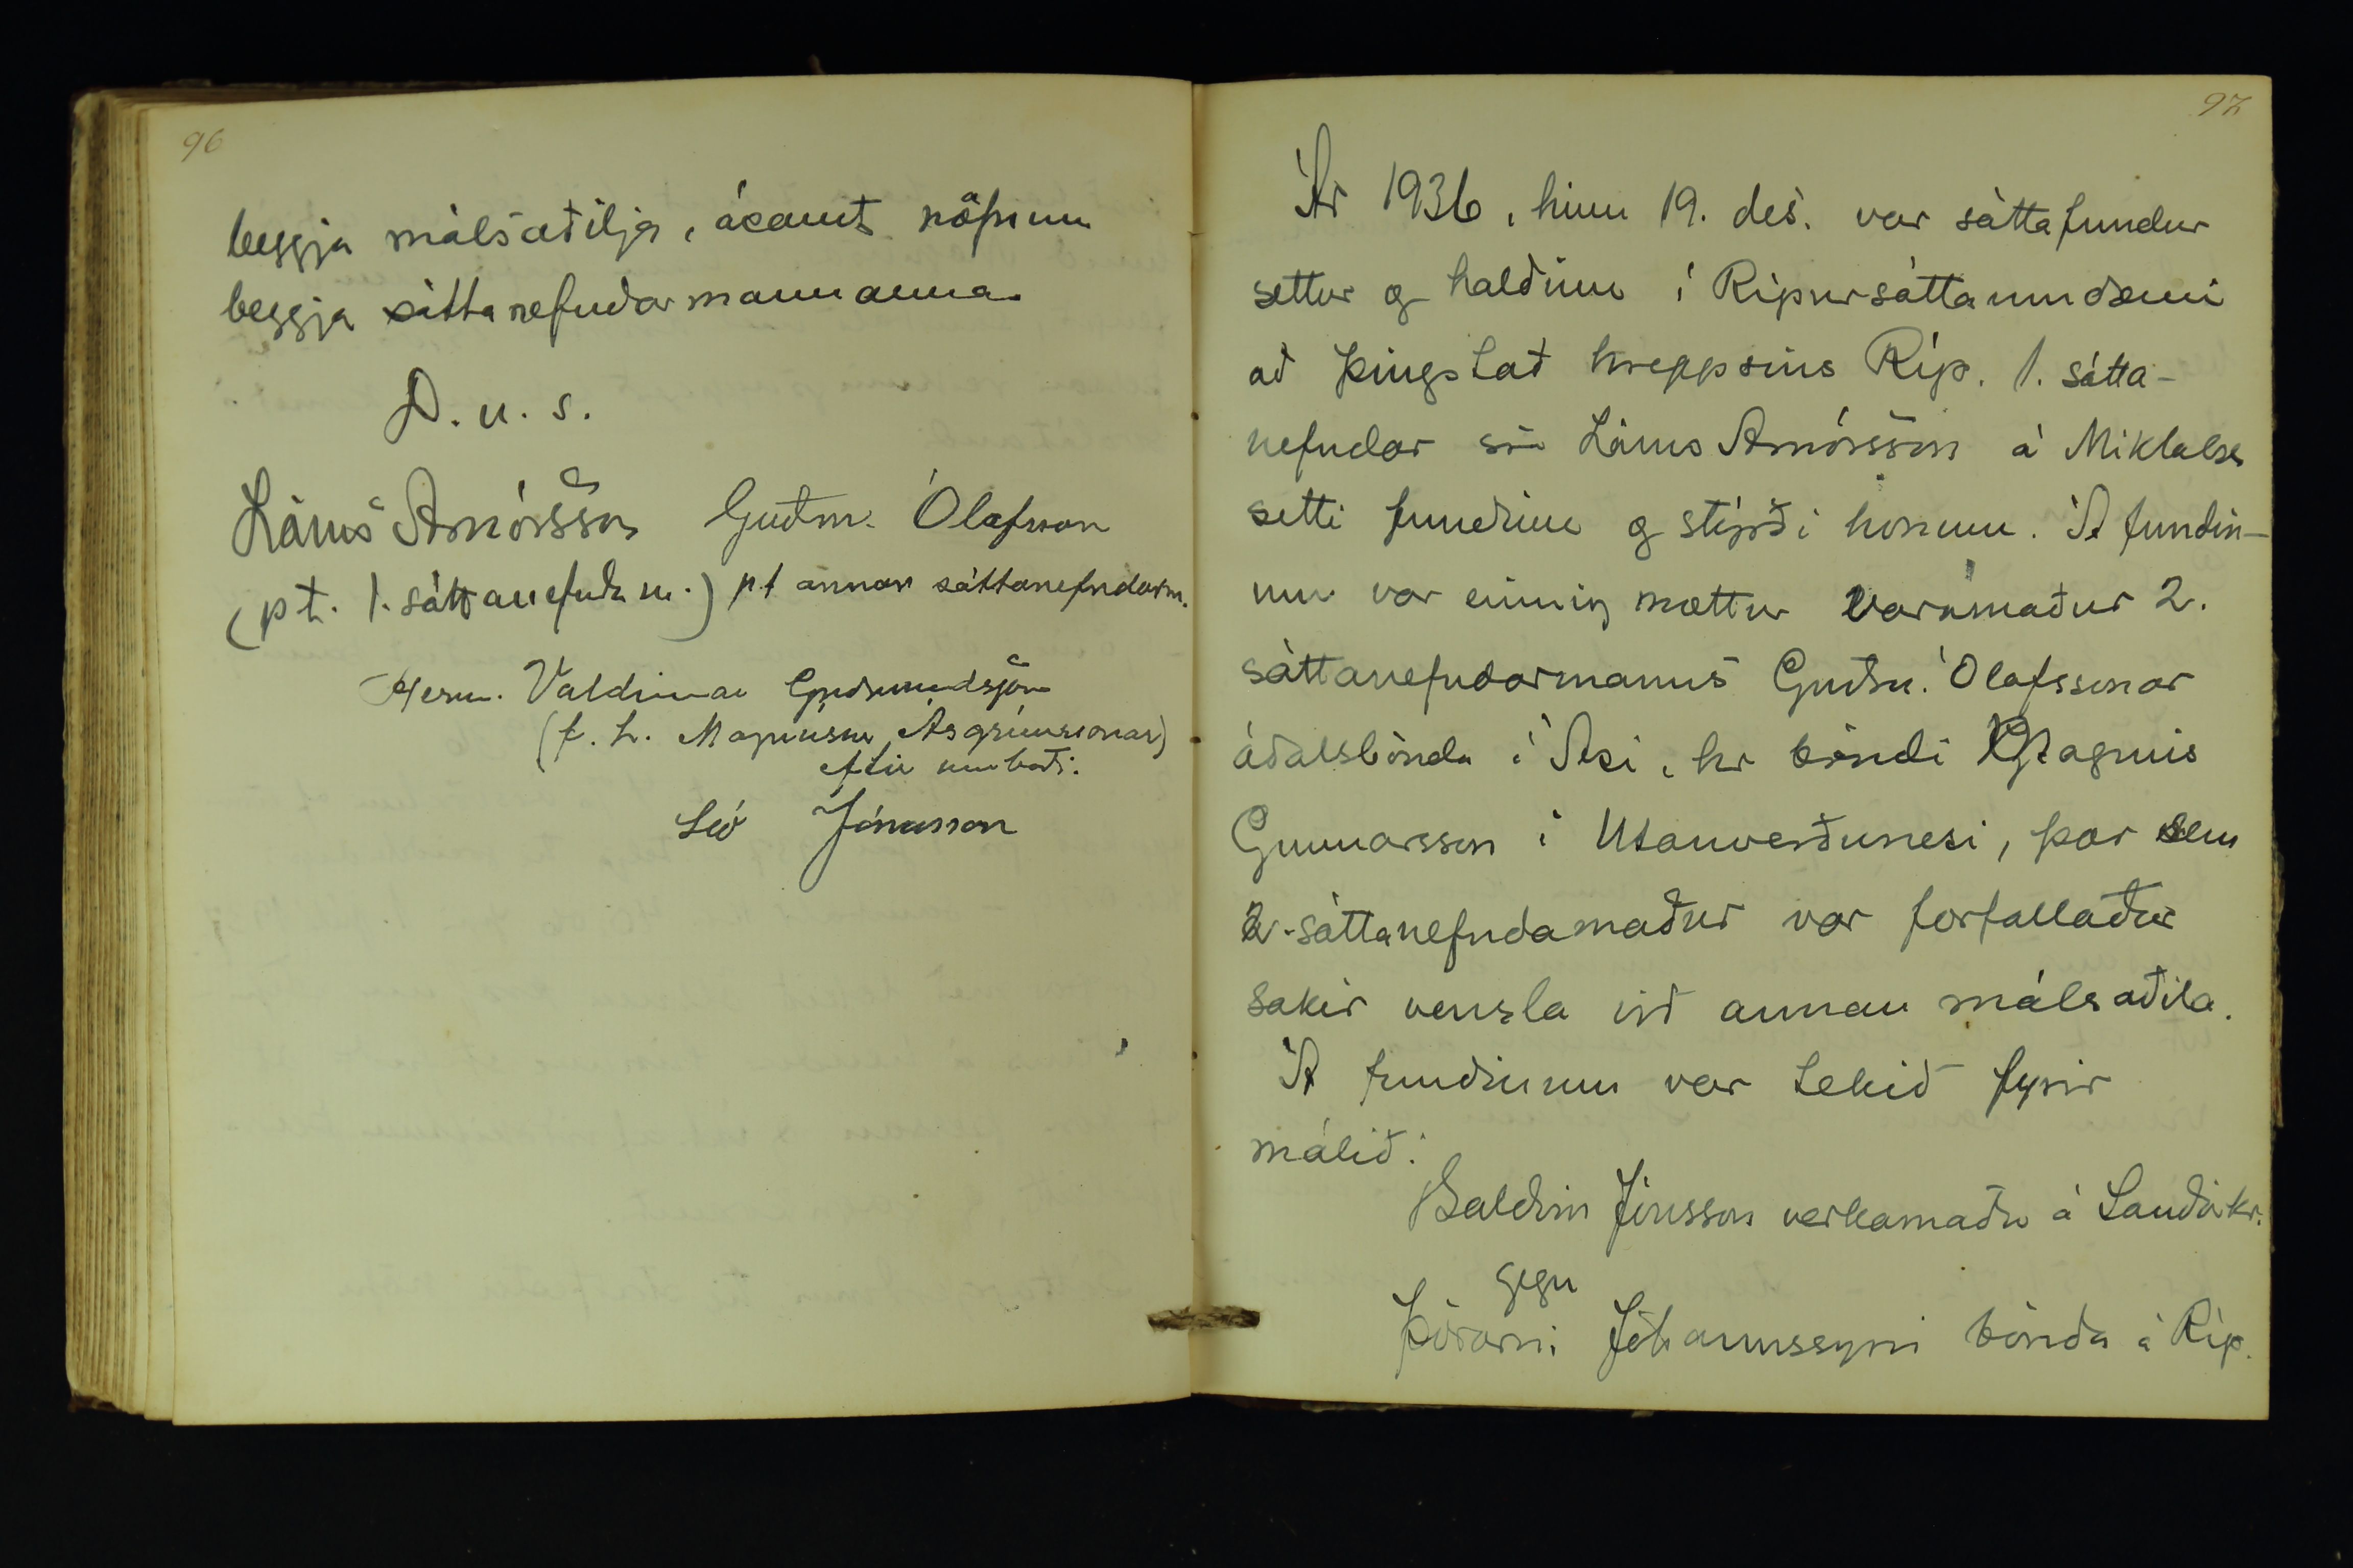 96
beggja málsaðilja, ásamt nöfnum
beggja sáttanefndarmannanna
D. u. s.
Lárus Arnórsson Guðm. Ólafsson
(p t. 1. sáttanefndm.) p.t annar sáttanefndarm.
Herm. Valdimar Guðmundsson
(f. h. Magnúsar Ásgrímssonar)
eftir umboði.
Leó Jónasson
97
Ár 1936, hinn 19. des. var sáttafundur
settur og haldinn í Rípursáttaumdæmi
að þingstað hreppsins Ríp. 1. sátta-
nefndar sr. Lárus Arnórsson á Miklabæ
setti fundinn og stýrði honum. Á fundin-
um var einnig mættur varamaður 2.
sáttanefndarmanns Guðm. Ólafssonar
óðalsbónda í Ási, hr bóndi Magnús
Gunnarsson í Utanverðunesi, þar sem
2. sáttanefndamaður var forfallaður
sakir vensla við annan málsaðila.
Á fundinum var tekið fyrir
málið:
Baldvin Jónsson verkamaður á Sauðárkr.
gegn
Þórarni Jóhannssyni bónda á Ríp.